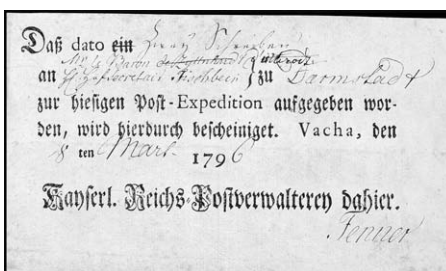 Daß dato ein Herrn Schreiben
an Hofsecretair Fischbein zu Darmstadt
zur hiesigen Post-Expedition aufgegeben wor-
den, wird hierdurch bescheiniget. Vacha, den
8 ten Mart. 1796
Kayserl. Reichs-Postverwalterey dahier.